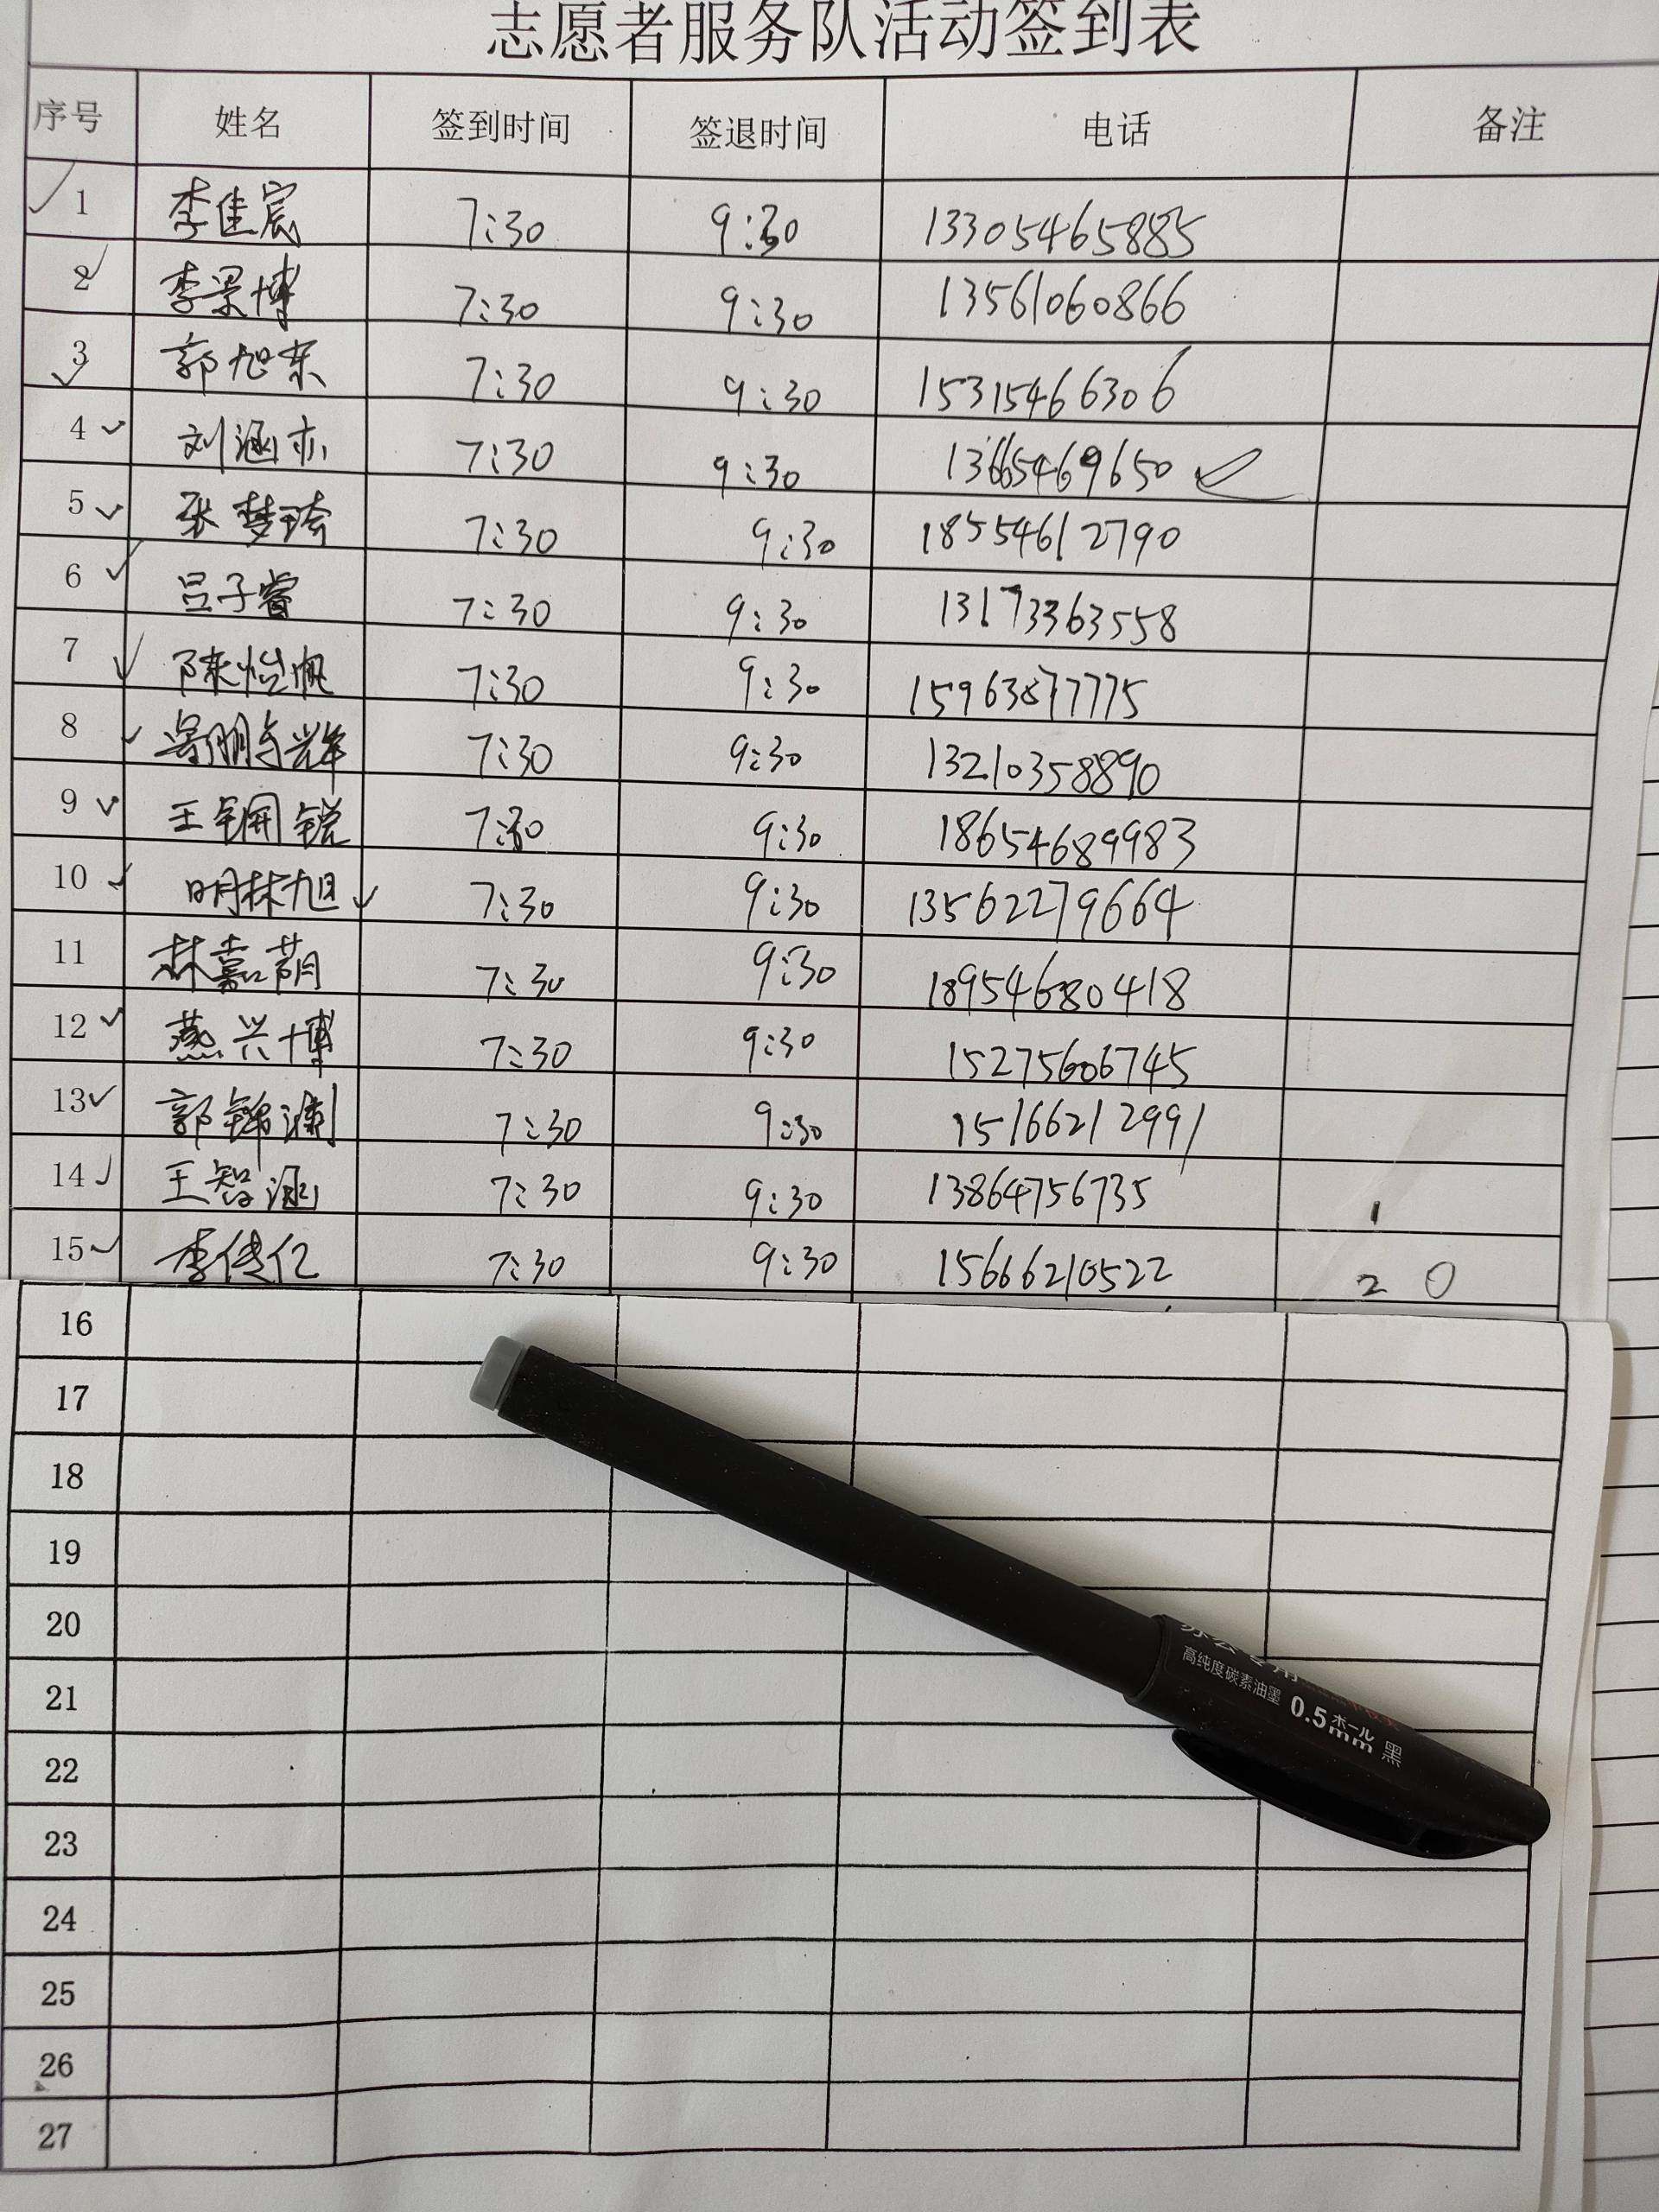 志愿者服务队活动签到表
序号 姓名 签到时间 签退时间 电话 备注
1 李佳宸 7:30 9:30 13305465885
2 李景博 7:30 9:30 13561060866
3 郭旭东 7:30 9:30 15315466306
4 刘涵亦 7:30 9:30 13665469650
5 张梦 7:30 9:30 18554612790
6 吕子睿 7:30 9:30 13173363558
7 陈怡帆 7:30 9:30 15963877775
8 7:30 9:30 13210358890
9 王 锐 7:30 9:30 18654689983
10 明林旭 7:30 9:30 13562279664
11 林嘉萌 7:30 9:30 18954680418
12 燕兴博 7:30 9:30 15275606745
13 郭锦澜 7:30 9:30 15166212991
14 王智涵 7:30 9:30 13864756735 1
15 李传亿 7:30 9:30 15666210522 2 0
16
17
18
19
20
21
22
23
24
25
26
27
办公专用
高纯度碳素油墨 0.5mm ボール 黑